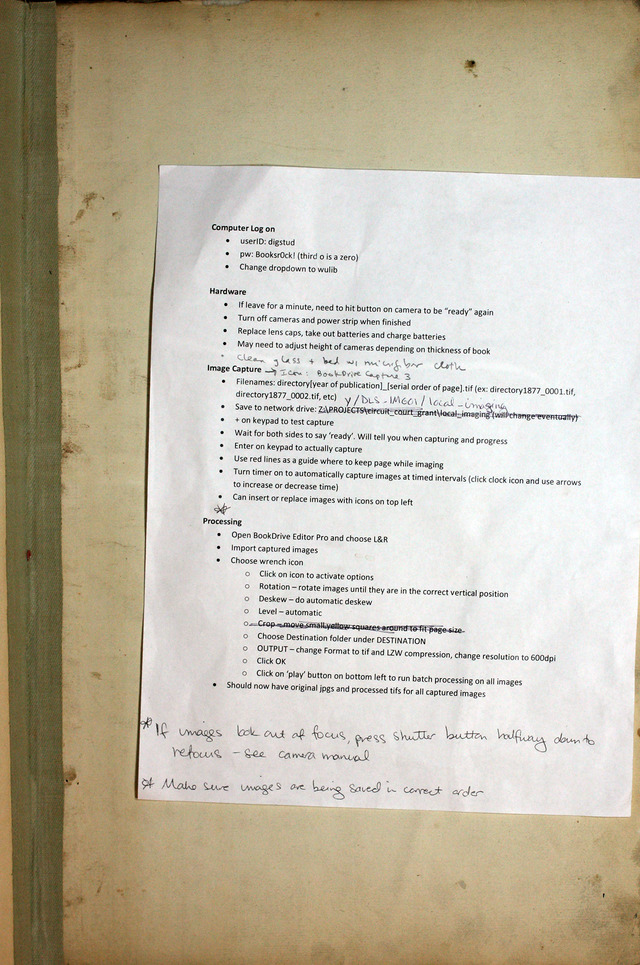 Computer Log on
• userID: digstud
• pw: Booksr0ck! (third o is a zero)
• Change dropdown to wulib
Hardware
• If leave for a minute, need to hit button on camera to be "ready" again
• Turn off cameras and power strip when finished
• Replace lens caps, take out batteries and charge batteries
• May need to adjust height of cameras depending on thickness of book
• Clean glass + bed w/ microfiber cloth
Image Capture → Icon: BookDrive Capture 3
• Filenames: directory[year of publication]_[serial order of page].tif (ex: directory1877_0001.tif,
directory1877_0002.tif, etc) y/DLS-IMG01/local-imaging
• Save to network drive: Z:\PROJECTS\circuit_court_grant\local_imaging (will change eventually)
• + on keypad to test capture
• Wait for both sides to say 'ready'. Will tell you when capturing and progress
• Enter on keypad to actually capture
• Use red lines as a guide where to keep page while imaging
• Turn timer on to automatically capture images at timed intervals (click clock icon and use arrows
to increase or decrease time)
• Can insert or replace images with icons on top left
*
Processing
• Open BookDrive Editor Pro and choose L&R
• Import captured images
• Choose wrench icon
o Click on icon to activate options
o Rotation – rotate images until they are in the correct vertical position
o Deskew – do automatic deskew
o Level – automatic
o Crop – move small yellow squares around to fit page size
o Choose Destination folder under DESTINATION
o OUTPUT – change Format to tif and LZW compression, change resolution to 600dpi
o Click OK
o Click on 'play' button on bottom left to run batch processing on all images
• Should now have original jpgs and processed tifs for all captured images
* If images look out of focus, press shutter button halfway down to
refocus – see camera manual
* Make sure images are being saved in correct order